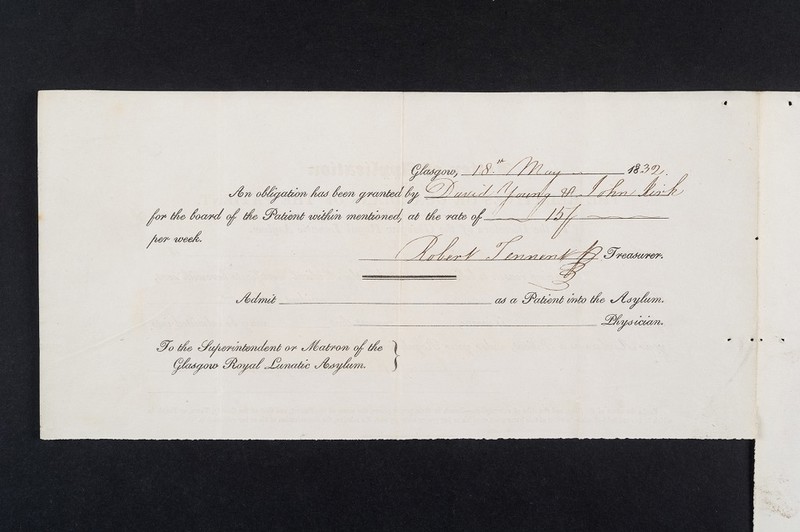 Glasgow, 18th May 1832.
An obligation has been granted by David Young & John Kirk
for the board of the Patient within mentioned, at the rate of 15/
per week.
Robert Tennent Treasurer.
Admit as a Patient into the Asylum.
Physician.
To the Superintendent or Matron of the
Glasgow Royal Lunatic Asylum.